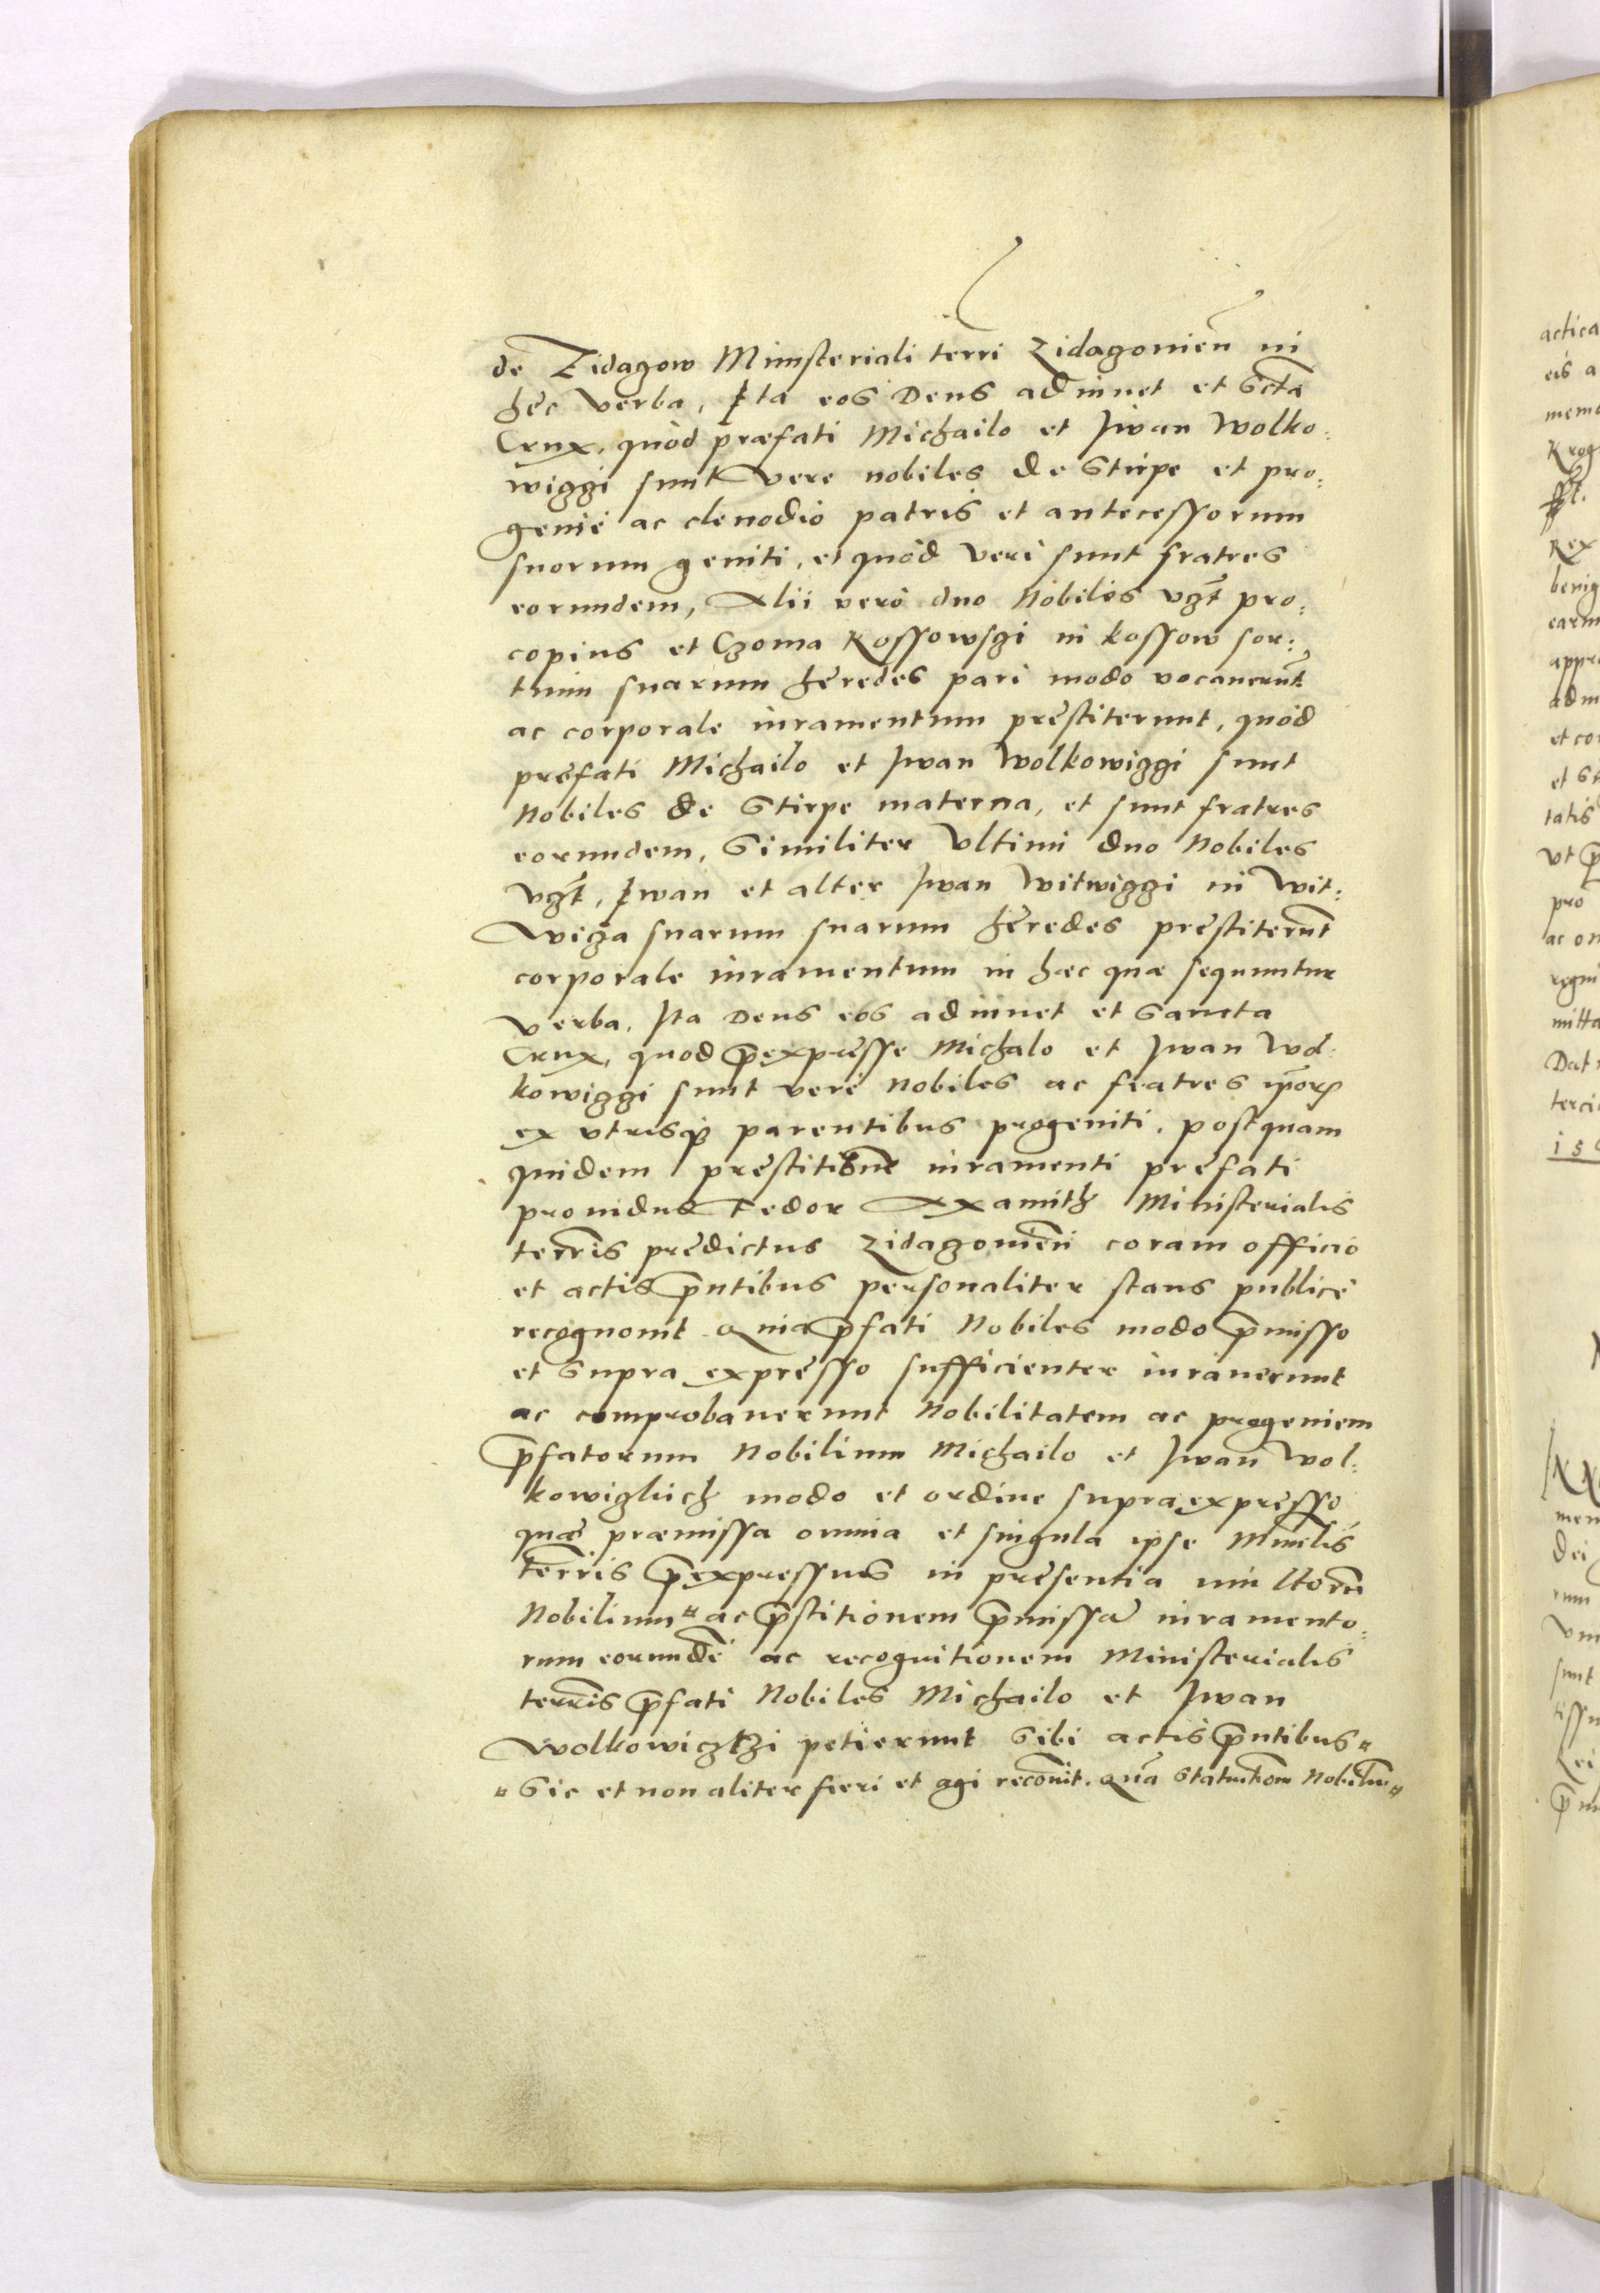 de Zidagow Ministeriali terri Zidagouien̄ in
hęc verba, Ita eos Deus adiuuet et Sctā
Crux, quòd præfati Michailo et Iwan Wolko:
wizzi sunt Vere nobiles de Stirpe et pro:
genie ac clenodio patris et antecessorum
suorum geniti, et quòd Veri sunt fratres
eorundem, Alii verò duo Nobiles vzt̄ pro:
copius et Choma Kossowszi in Kossow sor:
tium suarum hęredes pari modo vocauerunt̄
ac corporale iuramentum pręstiterunt, quòd
pręfati Michailo et Iwan Wolkowizzi sunt
Nobiles de Stirpe materna, et sunt fratres
eorundem, Similiter Vltimi duo Nobiles
vzt̄, Iwan et alter Iwan Witwizzi in Wit:
wiza suarum suarum hęredes pręstiterunt̄
corporale iuramentum in hæc quæ sequuntur
Verba, Ita Deus eos adiuuet et Sancta
Crux, quod p̄expresse Michalo et Iwan Wol:
kowizzi sunt veri nobiles ac fratres ip̄orꝝ
ex vtrisqꝫ parentibus progeniti. postquam
quidem pręstitione iuramenti pręfati
prouidus Fedor Axamith Ministerialis
terrīs prędictus Zidagouien̄ coram officio
et actis p̄ntibus personaliter stans publicè
recognouit Quia p̄fati Nobiles modo p̄misso
et Supra expresso sufficienter iurauerunt
ac comprobauerunt Nobilitatem ac progeniem
p̄fatorum Nobilium Michailo et Iwan Wol:
kowizhich modo et ordine supra expresso
quæ præmissa omnia et singula ipse Min̄lis
terrīs p̄expressus in presentia multorū
Nobilium ac p̄stitionem p̄missā iuramento:
rum eorundē ac recognitionem Ministerialis
terrīs p̄fati Nobiles Michailo et Iwan
Wolkowiczkzi petierunt Sibi actis p̄ntibus
Sic et non aliter fieri et agi recōuit. Quā Nobiliū
actica
eis a
Rex
et co
tatis
pro
ac om
regni
mitta
Dat
terci
dei
sunt